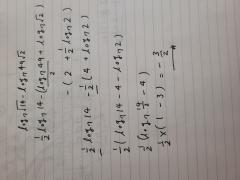 log₇√14 - log₇49√2
½log₇14 - (log₇49 + log₇√2)
- (2 + ½log₇2)
½log₇14 - ½(4 + log₇2)
½(log₇14 - 4 - log₇2)
½(log₇14/2 - 4)
½×(1 - 3) = -3/2